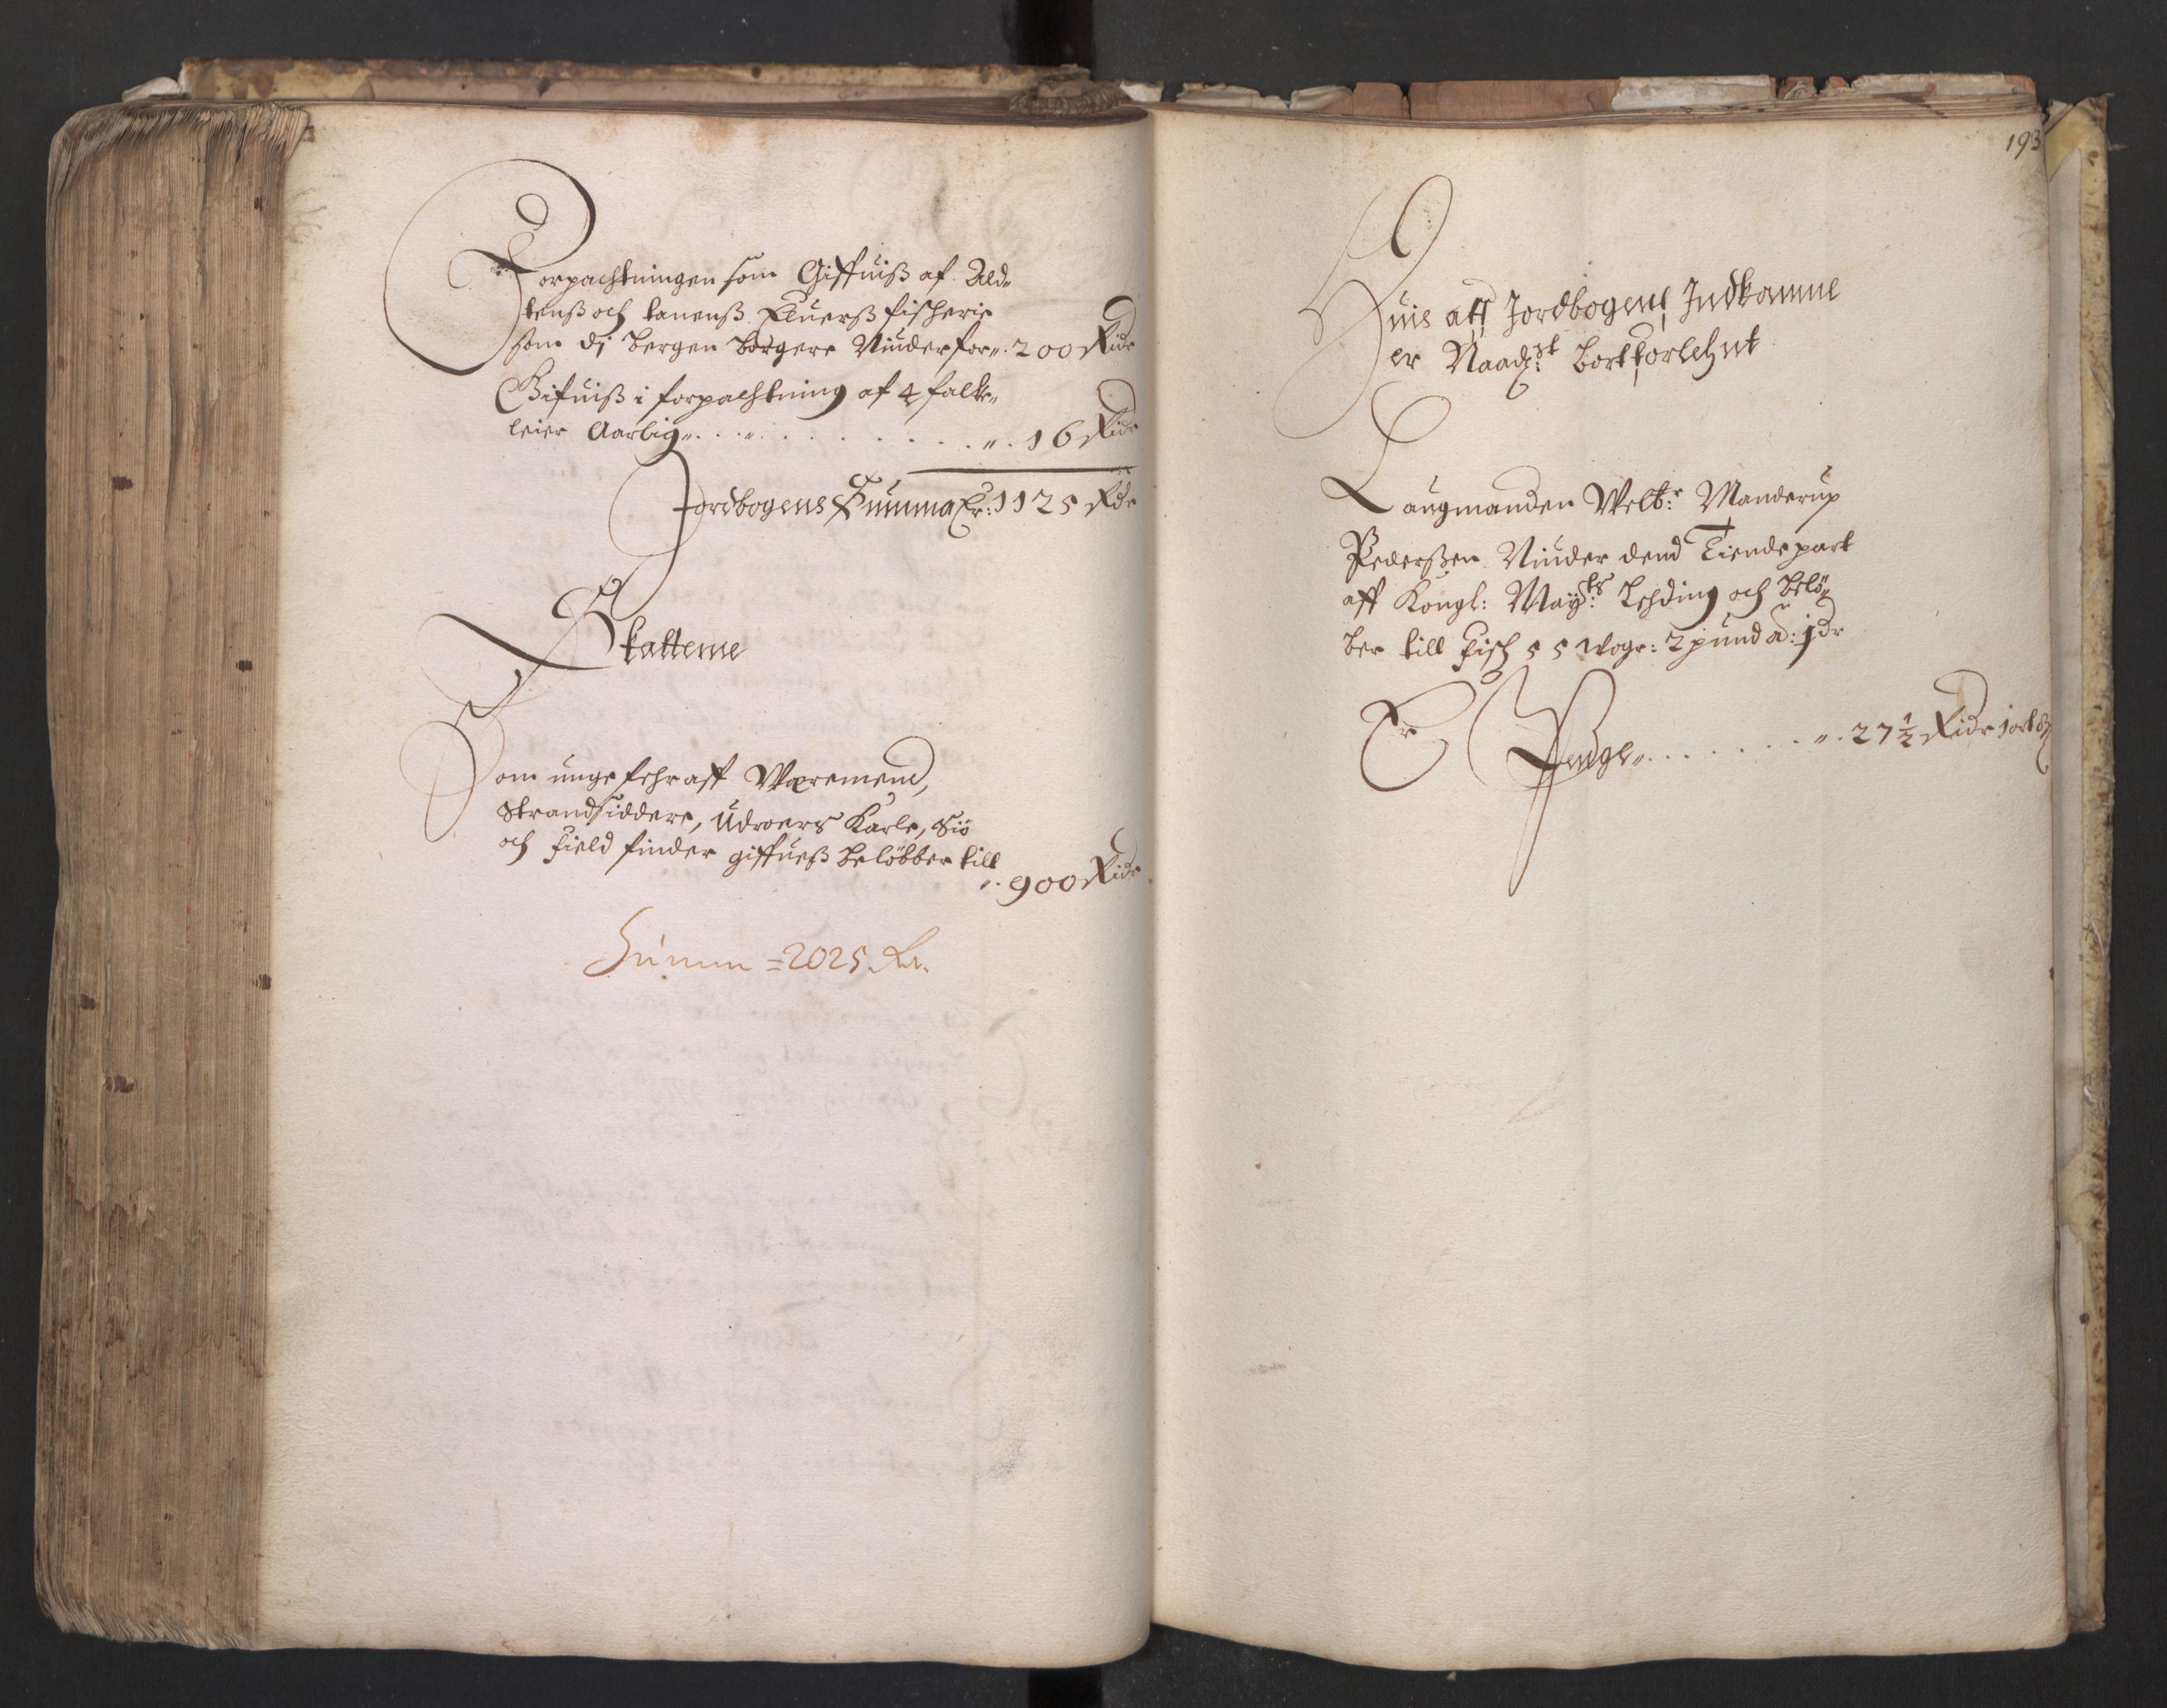 Forpachtningen som Giffuis af Ald-
tens och tanens Elluers fischerie
som dj bergen borgere Niuder for,, 200 Ridr
Gifuis i forpachtning af 4 falke-
leier Aarlig,, . . . . . . ,, 16 Ridr
Jordbogens Summa Er: 1125 Rdr
Skatterne
Som ungefehr aff Waremend,
Strandsiddere, Udroers Karle, Siö
och Field finder giffues belöbber till
,, 900 Ridr
Summ = 2025 Rr.
193
Huis aff Jordbogens Indkomme
er Naadst bortforlehnt
Laugmanden Welb:r Manderup
Pedersen Niuder dend Tiendepart
aff Kongl: Mayts Lehding och belö-
ber till Fisch 55 Woger: 2 pund a: j dr
Er Penge,, . . . . . . ,, 27 1/2 Ridr j ort